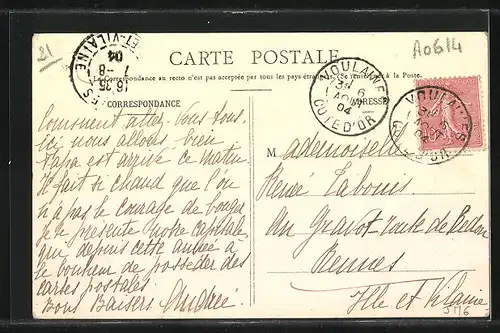 21
ET-VILAINE
04
8
16 35
CARTE POSTALE
A0614
La Correspondance au recto n'est pas acceptée par tous les pays étrangers. Se renseigner à la Poste.
CORRESPONDANCE
ADRESSE
VOULAINES
6
AOUT
04
COTE D'OR
VOULAINES
Comment allez Vous tous,
Ici nous allons bien
Papa est arrivé ce matin
Il fait si chaud que l'on
n'a pas le courage de bouger
Je te présente notre capitale
qui depuis cette année a
le bonheur de posséder des
cartes postales
Bons Baisers Andrée
Mademoiselle
Renée Labouis
au Gravot route de Redon
Rennes
Ille et Vilaine